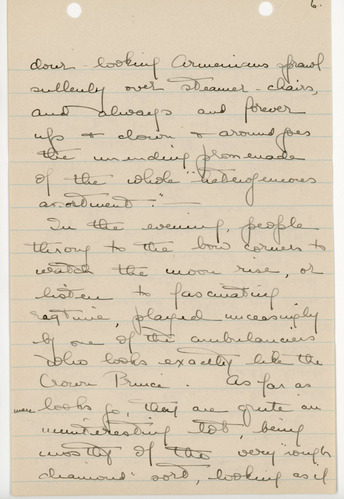 6.
dour-looking Armenians sprawl
sullenly over steamer-chairs,
and always and forever
up & down & around goes
the unending promenade
of the whole "heterogeneous
assortment." —
In the evening, people
throng to the bow corners to
watch the moon rise, or
listen to fascinating
ragtime, played unceasingly
by one of the ambulanciers
who looks exactly like the
Crown Prince. As far as
mere looks go, they are quite an
uninteresting lot, being
mostly of the very "rough
diamond" sort, looking as if